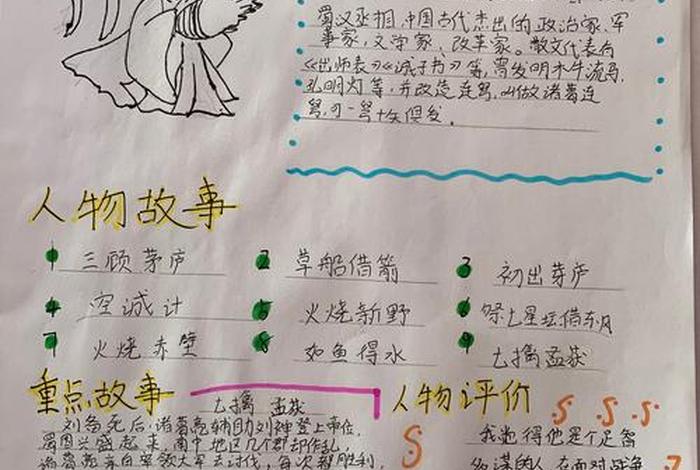 蜀汉丞相,中国古代杰出的政治家、军
事家,文学家、改革家。散文代表有
《出师表》《诫子书》等,曾发明木牛流马,
孔明灯等,并改造连弩,叫做诸葛连
弩,可一弩十矢俱发。
人物故事
1 三顾茅庐
2 草船借箭
3 初出芽庐
4 空诚计
5 火烧新野
6 祭七星坛借东风
7 火烧赤壁
8 如鱼得水
9 七擒孟获
重点故事
七擒 孟获
人物评价
刘备死后,诸葛亮辅助刘禅登上帝位,
蜀国兴盛起来,南中地区几个郡却作乱,
诸葛亮亲自率领大军去讨伐,每次都胜利,
我觉得他是个足智